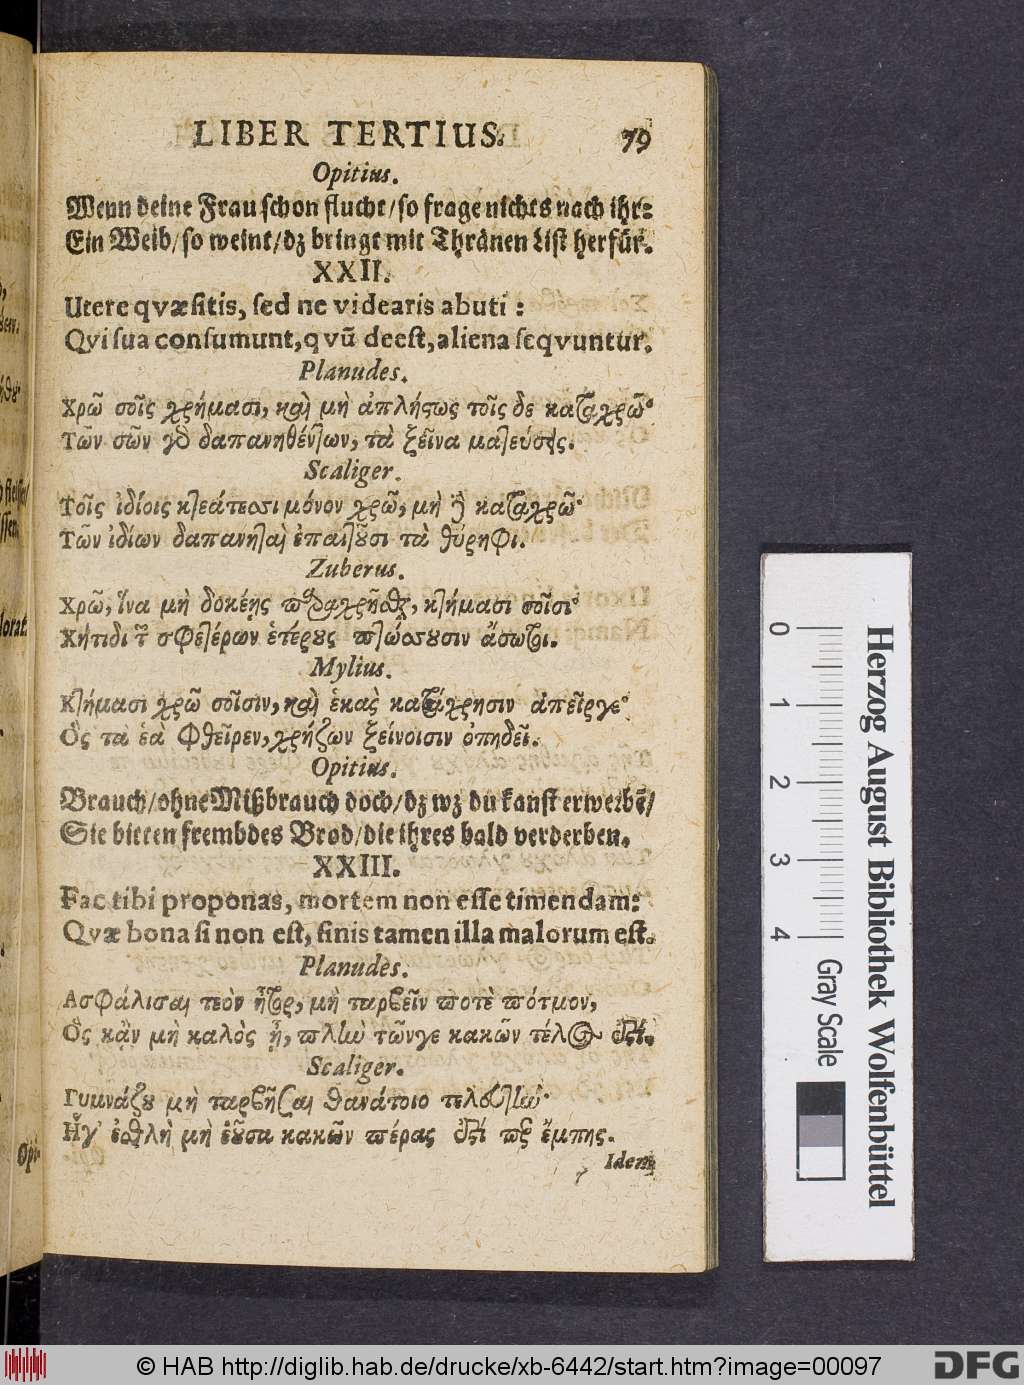 LIBER TERTIUS. 79
Opitius.
Wenn deine Frau schon flucht/so frage nichts nach ihr:
Ein Weib/so weint/dz bringt mit Thränen List herfür.
XXII.
Utere qvæsitis, sed ne videaris abuti:
Qvi sua consumunt, qvū deest, aliena seqvuntur.
Planudes.
Χρῶ σοῖς χρήμασι, καὶ μὴ ἀπλήστως τοῖς δε καταχρῶ·
Τῶν σῶν γὸ δαπανηθέντων, τὰ ξεῖνα ματεύσεις.
Scaliger.
Τοῖς ἰδίοις κτεάτεσσι μόνον χρῶ, μὴ ἢ καταχρῶ·
Τῶν ἰδίων δαπανηταὶ ἐπαιτοῦσι τὰ θύρηφι.
Zuberus.
Χρῶ, ἵνα μὴ δοκέῃς παραχρῆσθαι, κτήμασι σοῖσι·
Χήτιδι τ σφετέρων ἑτέρους πτώσσουσιν ἄσωτοι.
Mylius.
Κτήμασι χρῶ σοῖσιν, καὶ ἑκὰς κατάχρησιν ἀπεῖργε·
Ὃς τὰ ἑὰ φθεῖρεν, χρῄζων ξείνοισιν ὀπηδεῖ.
Opitius.
Brauch/ohne Mißbrauch doch/dz wz du kanst erweibē/
Sie bitten frembdes Brod/die ihres bald verderben.
XXIII.
Fac tibi proponas, mortem non esse timendam:
Qvæ bona si non est, finis tamen illa malorum est.
Planudes.
Ασφάλισαι τεὸν ἦτορ, μὴ ταρβεῖν ποτὲ πότμον,
Ὃς κἂν μὴ καλὸς ᾖ, πλὴν τῶνγε κακῶν τέλος ἐστί.
Scaliger.
Γυμνάζου μὴ ταρβῆσαι θανάτοιο τελευτήν·
Ἥγ' ἐσθλὴ μὴ ἐοῦσα κακῶν πέρας ἐστί περ ἔμπης.
Idem
Opi-
lorat.
Herzog August Bibliothek Wolfenbüttel
0 1 2 3 4
Gray Scale
© HAB http://diglib.hab.de/drucke/xb-6442/start.htm?image=00097
DFG